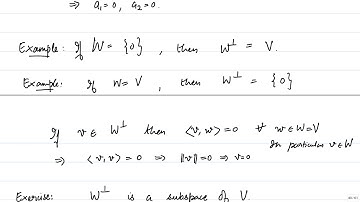 ⇒ a₁=0, a₂=0.
Example: If W = {0}, then W^⊥ = V.
Example: If W = V, then W^⊥ = {0}
If v ∈ W^⊥ then ⟨v, w⟩ = 0 ∀ w ∈ W=V
In particular v ∈ W
⇒ ⟨v, v⟩ = 0 ⇒ ‖v‖ = 0 ⇒ v=0
Exercise: W^⊥ is a subspace of V.